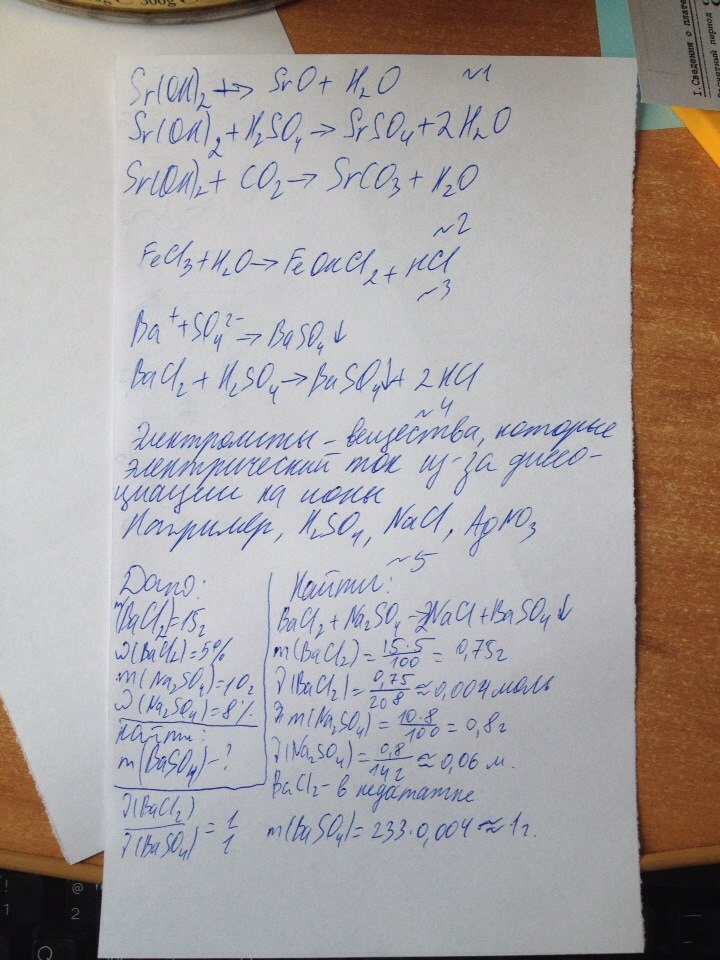 500g
I. Сведения о плате
етный период
Sr(OH)₂ +→ SrO + H₂O ~1
Sr(OH)₂ + H₂SO₄ → SrSO₄ + 2H₂O
Sr(OH)₂ + CO₂ → SrCO₃ + H₂O
~2
FeCl₃ + H₂O → FeOHCl₂ + HCl
~3
Ba⁺ + SO₄²⁻ → BaSO₄↓
BaCl₂ + H₂SO₄ → BaSO₄↓ + 2HCl
~4
Электролиты – вещества, которые
электрический ток из-за диссо-
циации на ионы
Например, H₂SO₄, NaCl, AgNO₃
~5
Дано:
m(BaCl₂)=15г
ω(BaCl₂)=5%
m(Na₂SO₄)=10г
ω(Na₂SO₄)=8%
Найти:
m(BaSO₄)-?
ν(BaCl₂)/ν(BaSO₄) = 1/1
Найти:
BaCl₂ + Na₂SO₄ → 2NaCl + BaSO₄↓
m(BaCl₂) = 15·5/100 = 0,75г
ν(BaCl₂) = 0,75/208 ≈ 0,004 моль
m(Na₂SO₄) = 10·8/100 = 0,8г
ν(Na₂SO₄) = 0,8/142 ≈ 0,06 м.
BaCl₂ - в недостатке
m(BaSO₄) = 233·0,004 ≈ 1г.
! 1
@ 2
Q